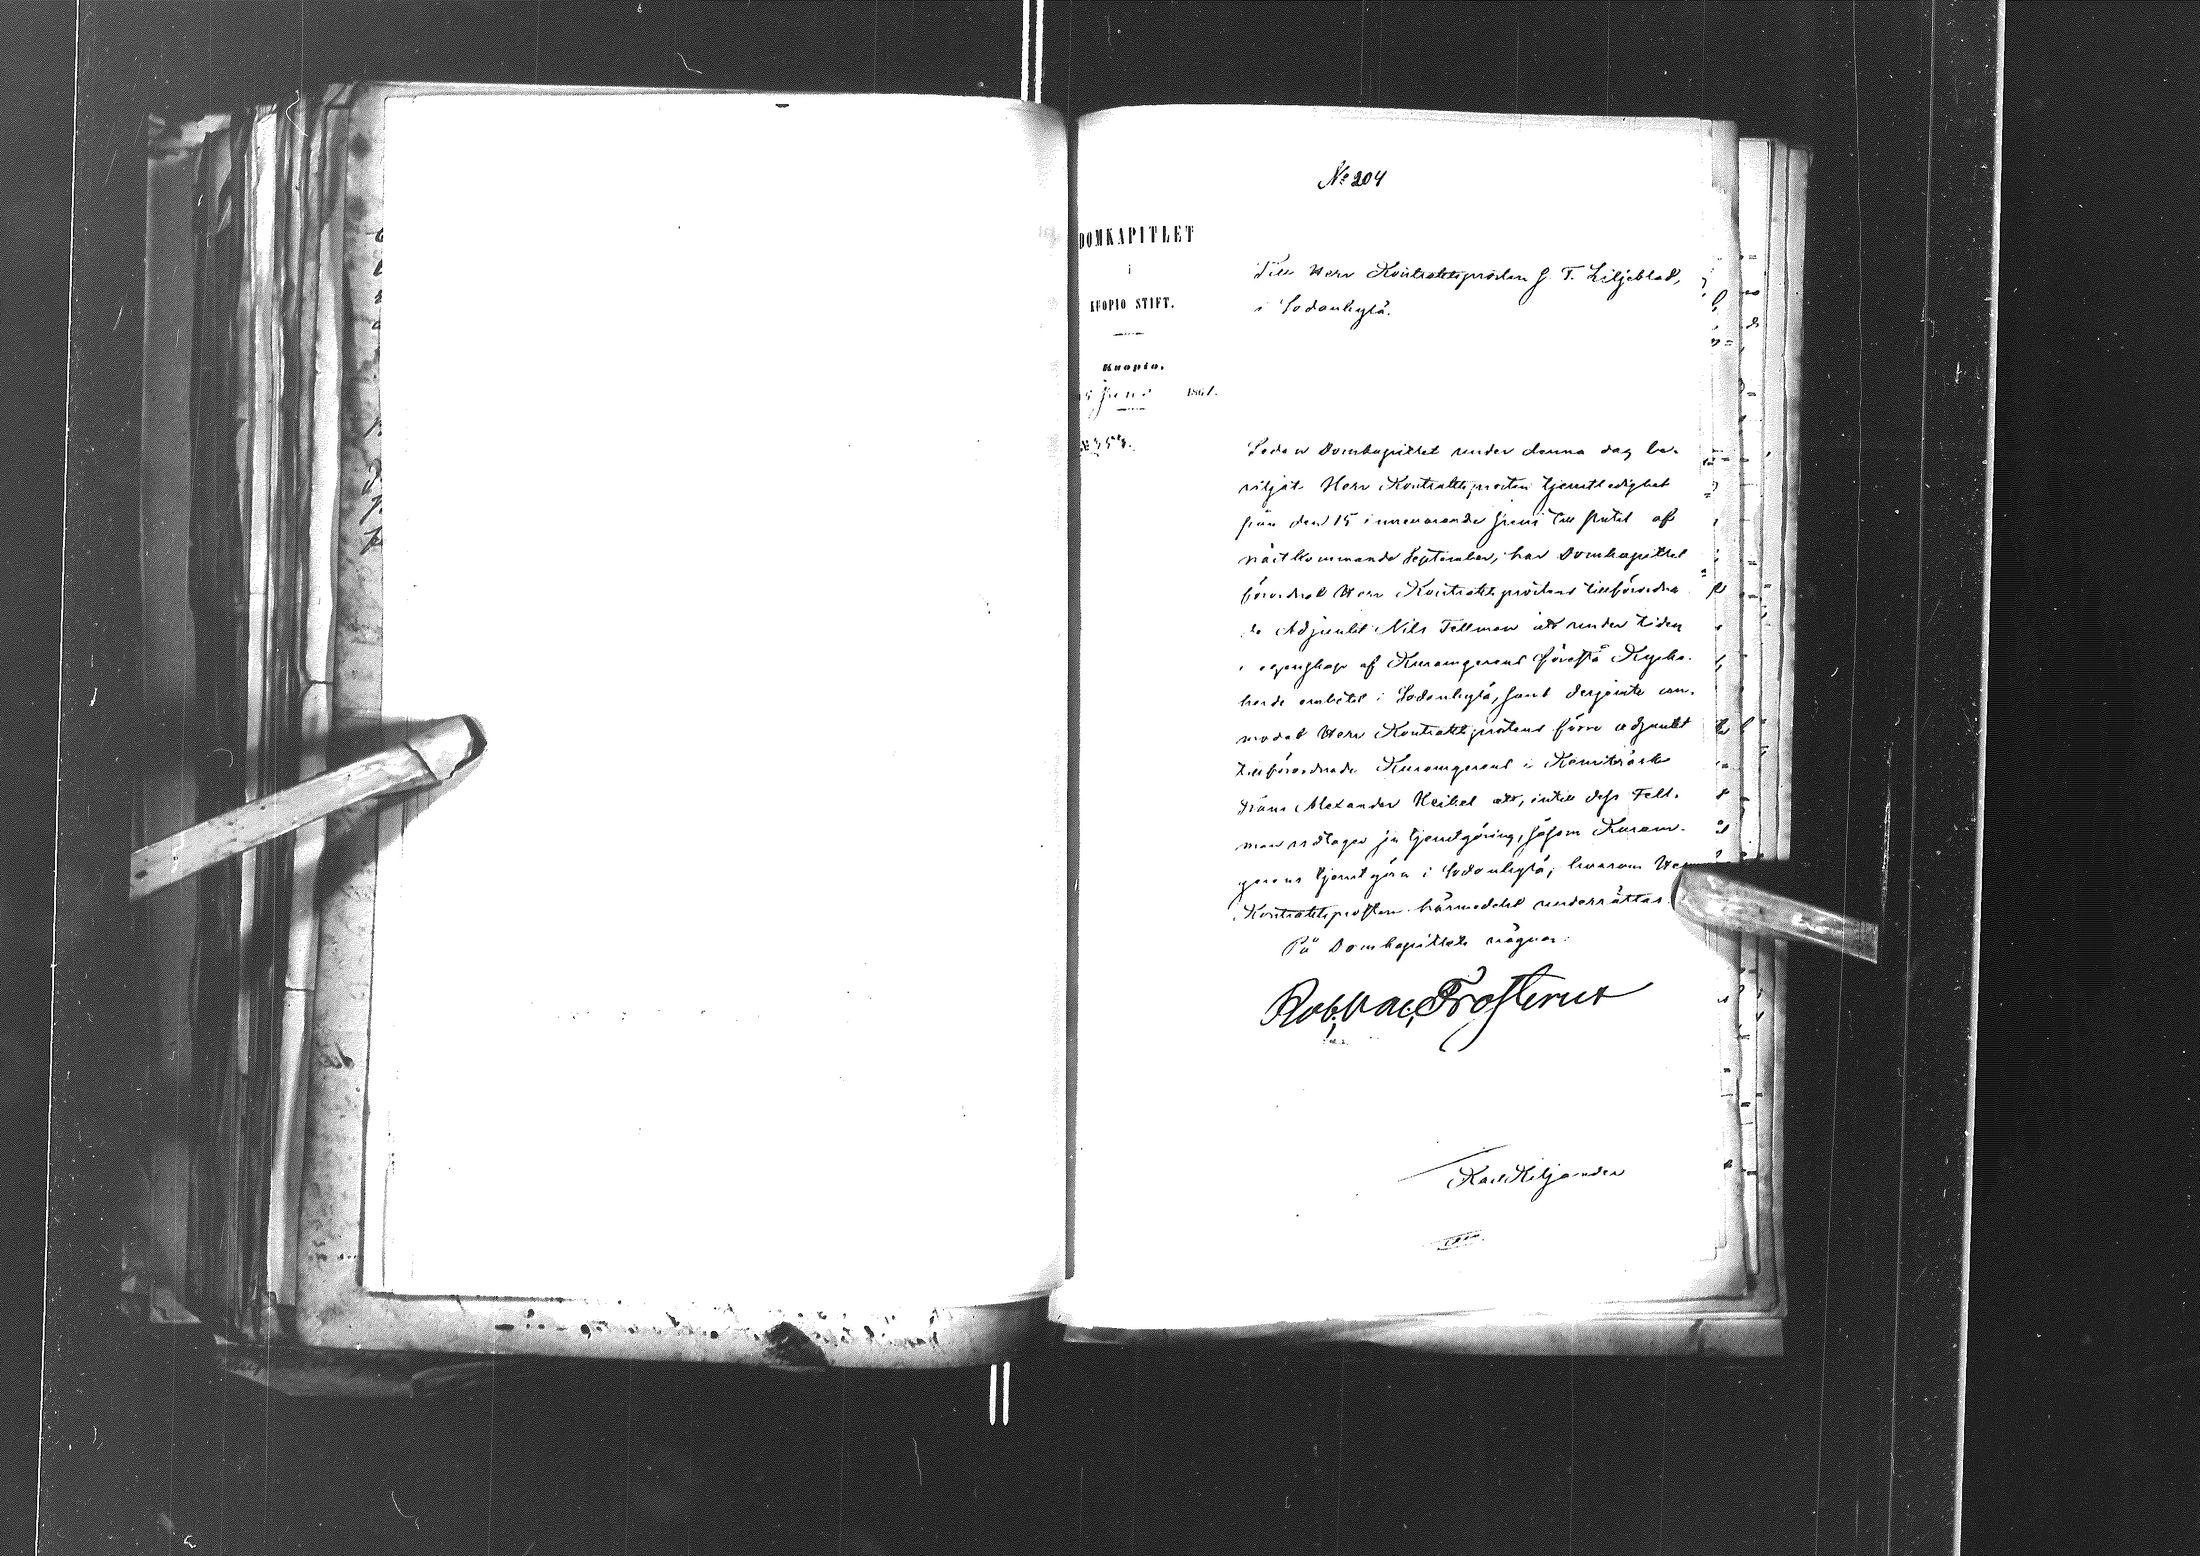 № 204
DOMKAPITLET
i
KUOPIO STIFT.
Kuopio,
5 Juni 1861.
Till Herr Kontraktsprosten J. T. Liljeblad,
i Sodankylä.
Sedan Domkapitlet under denna dag be-
viljat Herr Kontraktsprosten tjenstledighet
från den 15 innevarande Juni till slutet af
nästkommande September, har Domkapitlet
förordnat Herr Kontraktsprostens tillförordna-
de Adjunkt Nils Fellman att under tiden
i egenskap af Kuramgerens förestå Kyrko-
herde embetet i Sodankylä, samt derjemte an-
modat Herr Kontraktsprostens förre adjunkt
tillförordnade Kuramgerens i Kemiträsk
Frans Alexander Heikel att, intill dess Fell-
man vidtager sin tjenstgöring, såsom Kuram-
gerens tjenstgöra i Sodankylä; hvarom Herr
Kontraktsprosten härmedelst underrättas.
På Domkapitlets vägnar:
Rob. Val. Frosterus
Karl Kiljander